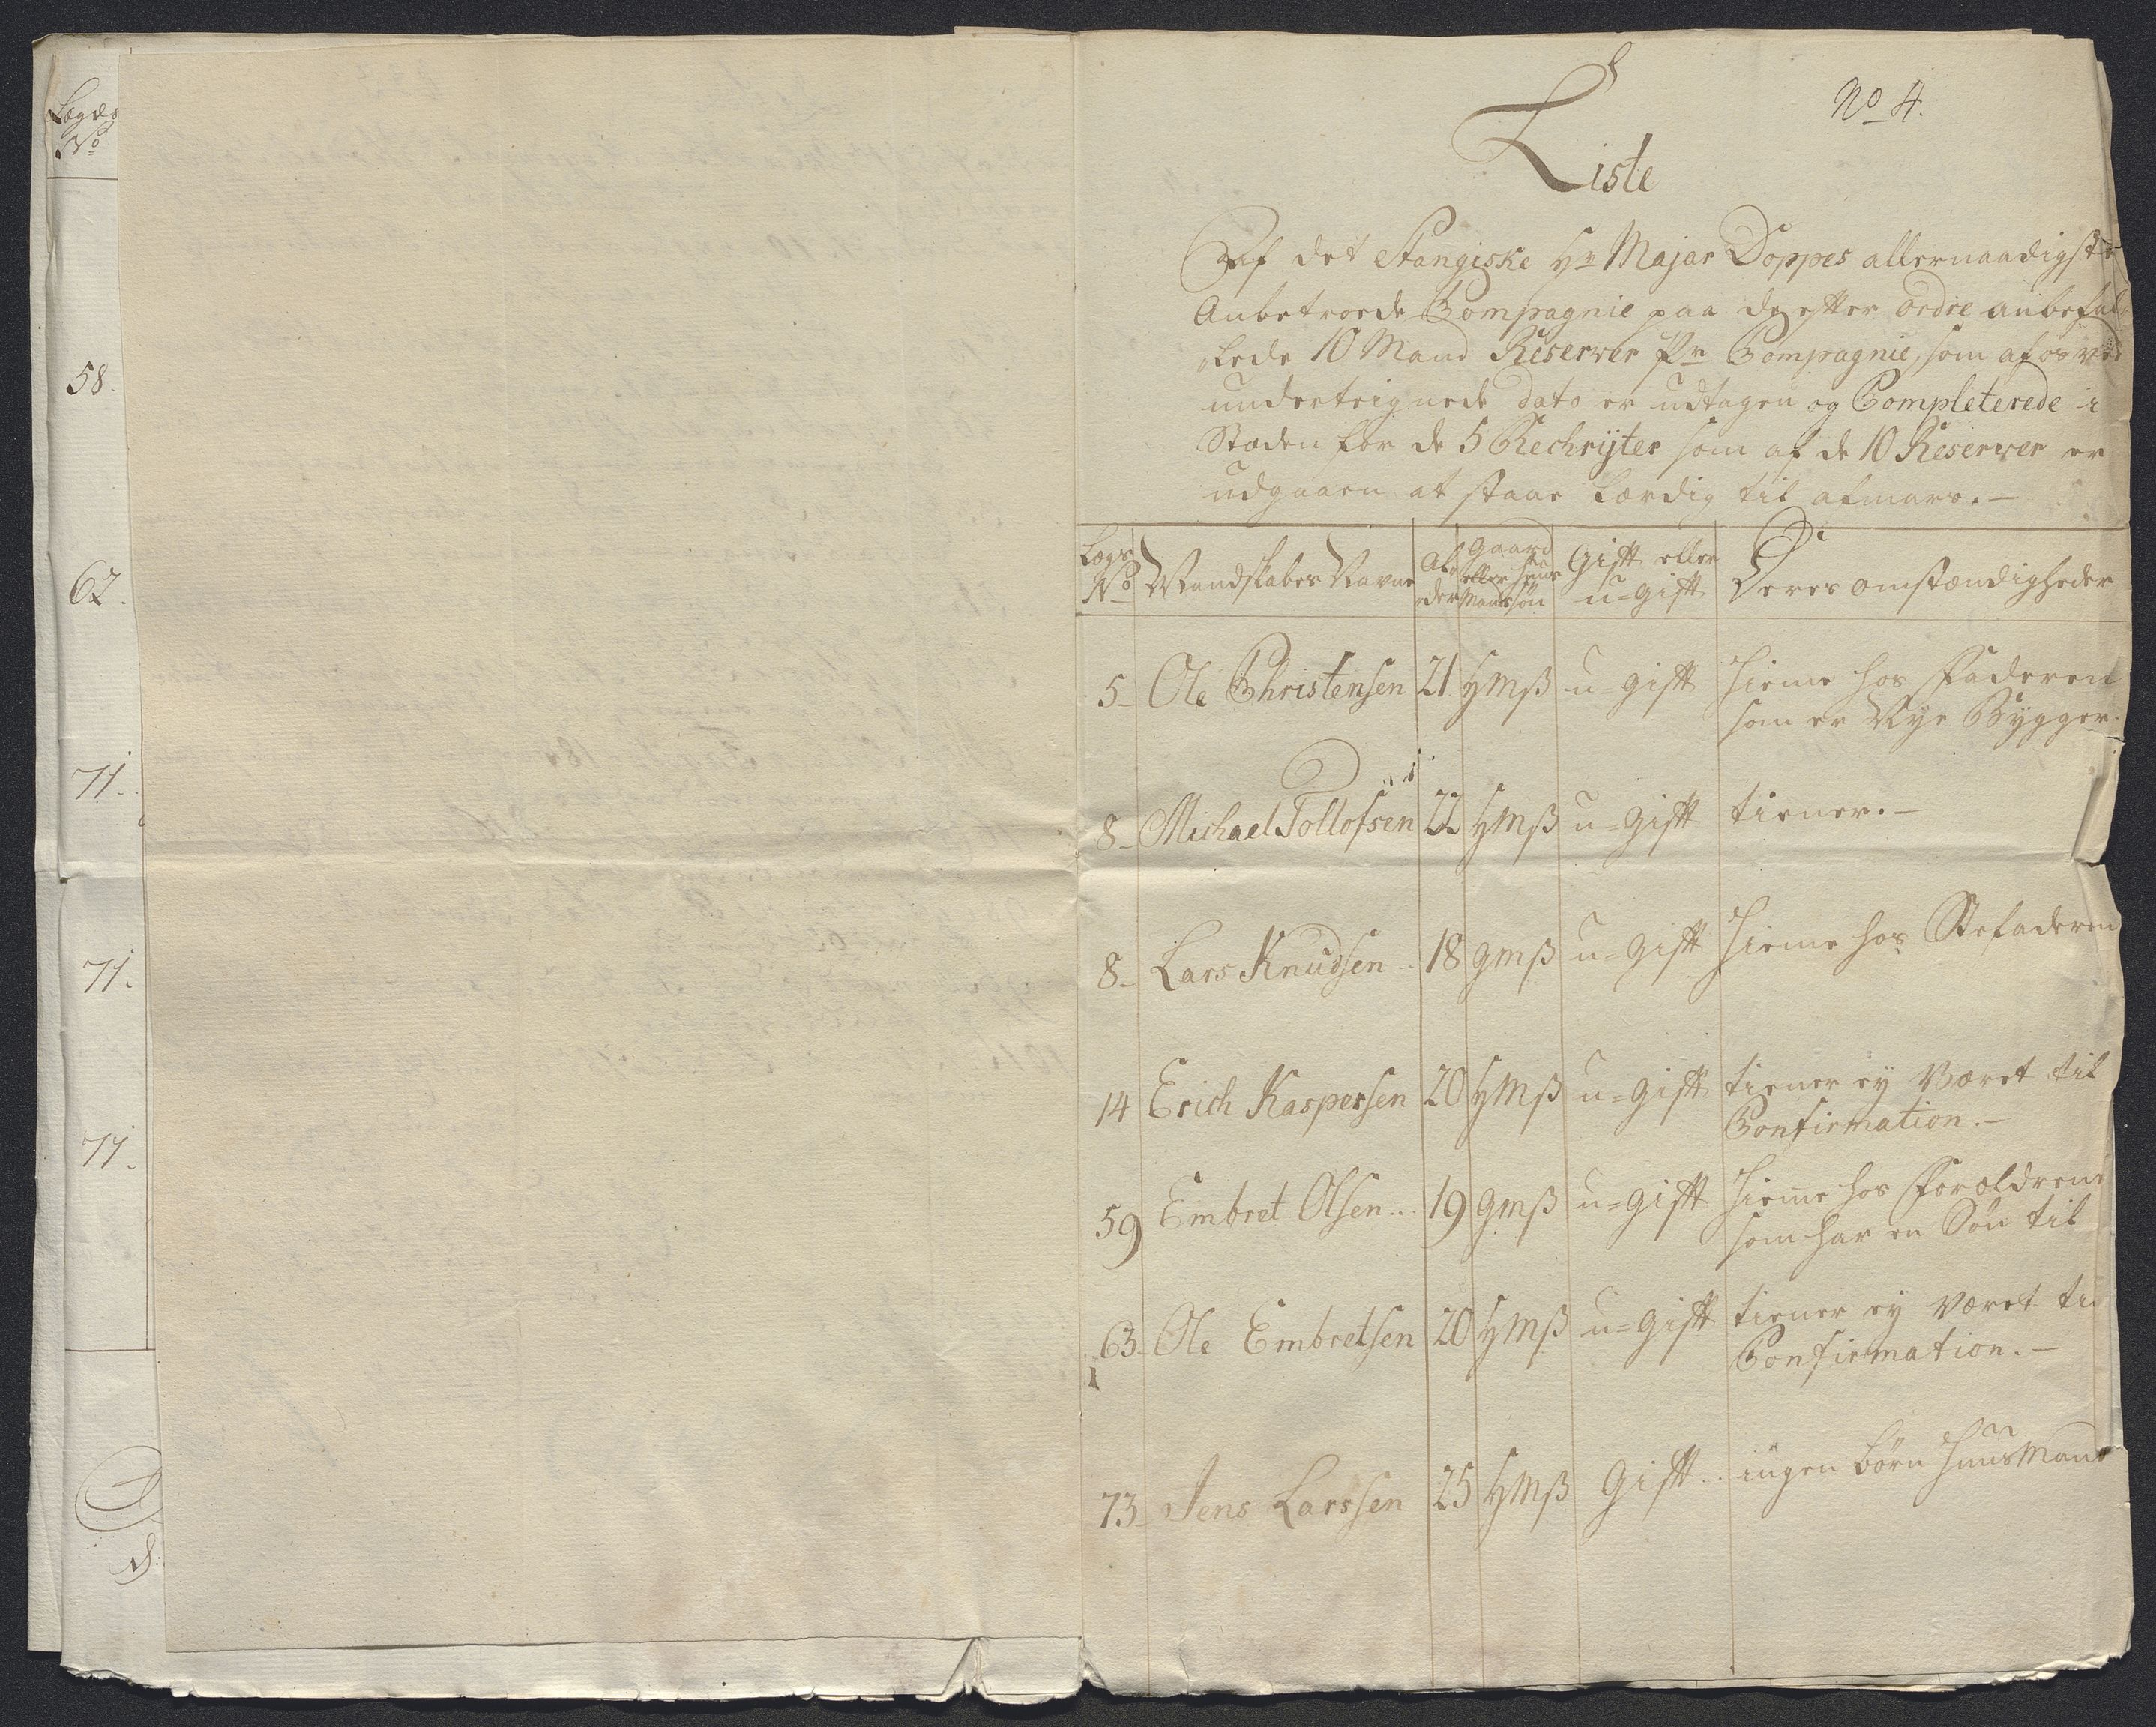 Lægds
No
58.
62.
71.
71.
77.
No 4.
Liste
Af det Stangiske Hr Major Doppes allernaadigste
Anbetroede Compagnie paa de efter ordre anbefal-
lede 10 Mand Reserver pr Compagnie, som af os ved
underteignede dato er udtagen og Completerede i
Stæden for de 5 Rechryter som af de 10 Reserver er
udgaaen at staae færdig til afmars.-
Lægs No | Mandskabes Navne | Al-der | Gaard eller Huusmands søn | Gift eller u=gift | Deres omstændigheder
5- Ole Christensen 21 HMß u=gift Hieme hos Faderen
som er Nye Bygger.
8- Michael Tollofsen 22 HMß u=gift tiener.-
8- Lars Knudsen .. 18 gmß u=gift Hieme hos Stefaderen
14 Erich Kaspersen 20 HMß u=gift tiener ey Været til
Confirmation.-
59 Embret Olsen... 19 gmß u=gift Hieme hos Forældrene
som har en Søn til
63- Ole Embretsen 20 HMß u=gift tiener ey Været til
Confirmation.-
73- Jens Larssen 25 HMß Gift .. ingen børn HuusMand